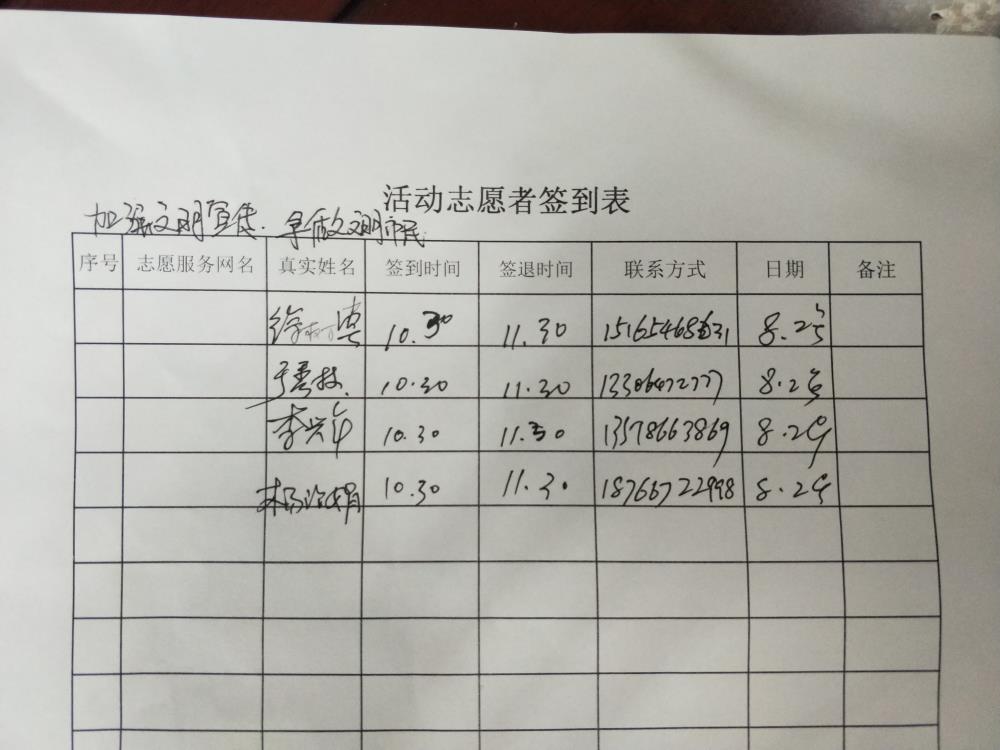 活动志愿者签到表
加强文明宣传. 争做文明市民
序号 志愿服务网名 真实姓名 签到时间 签退时间 联系方式 日期 备注
徐 10.30 11.30 8.25
于 10.30 11.30 13306472777 8.25
李兴 10.30 11.30 13578663869 8.25
杨 10.30 11.30 18766722998 8.25